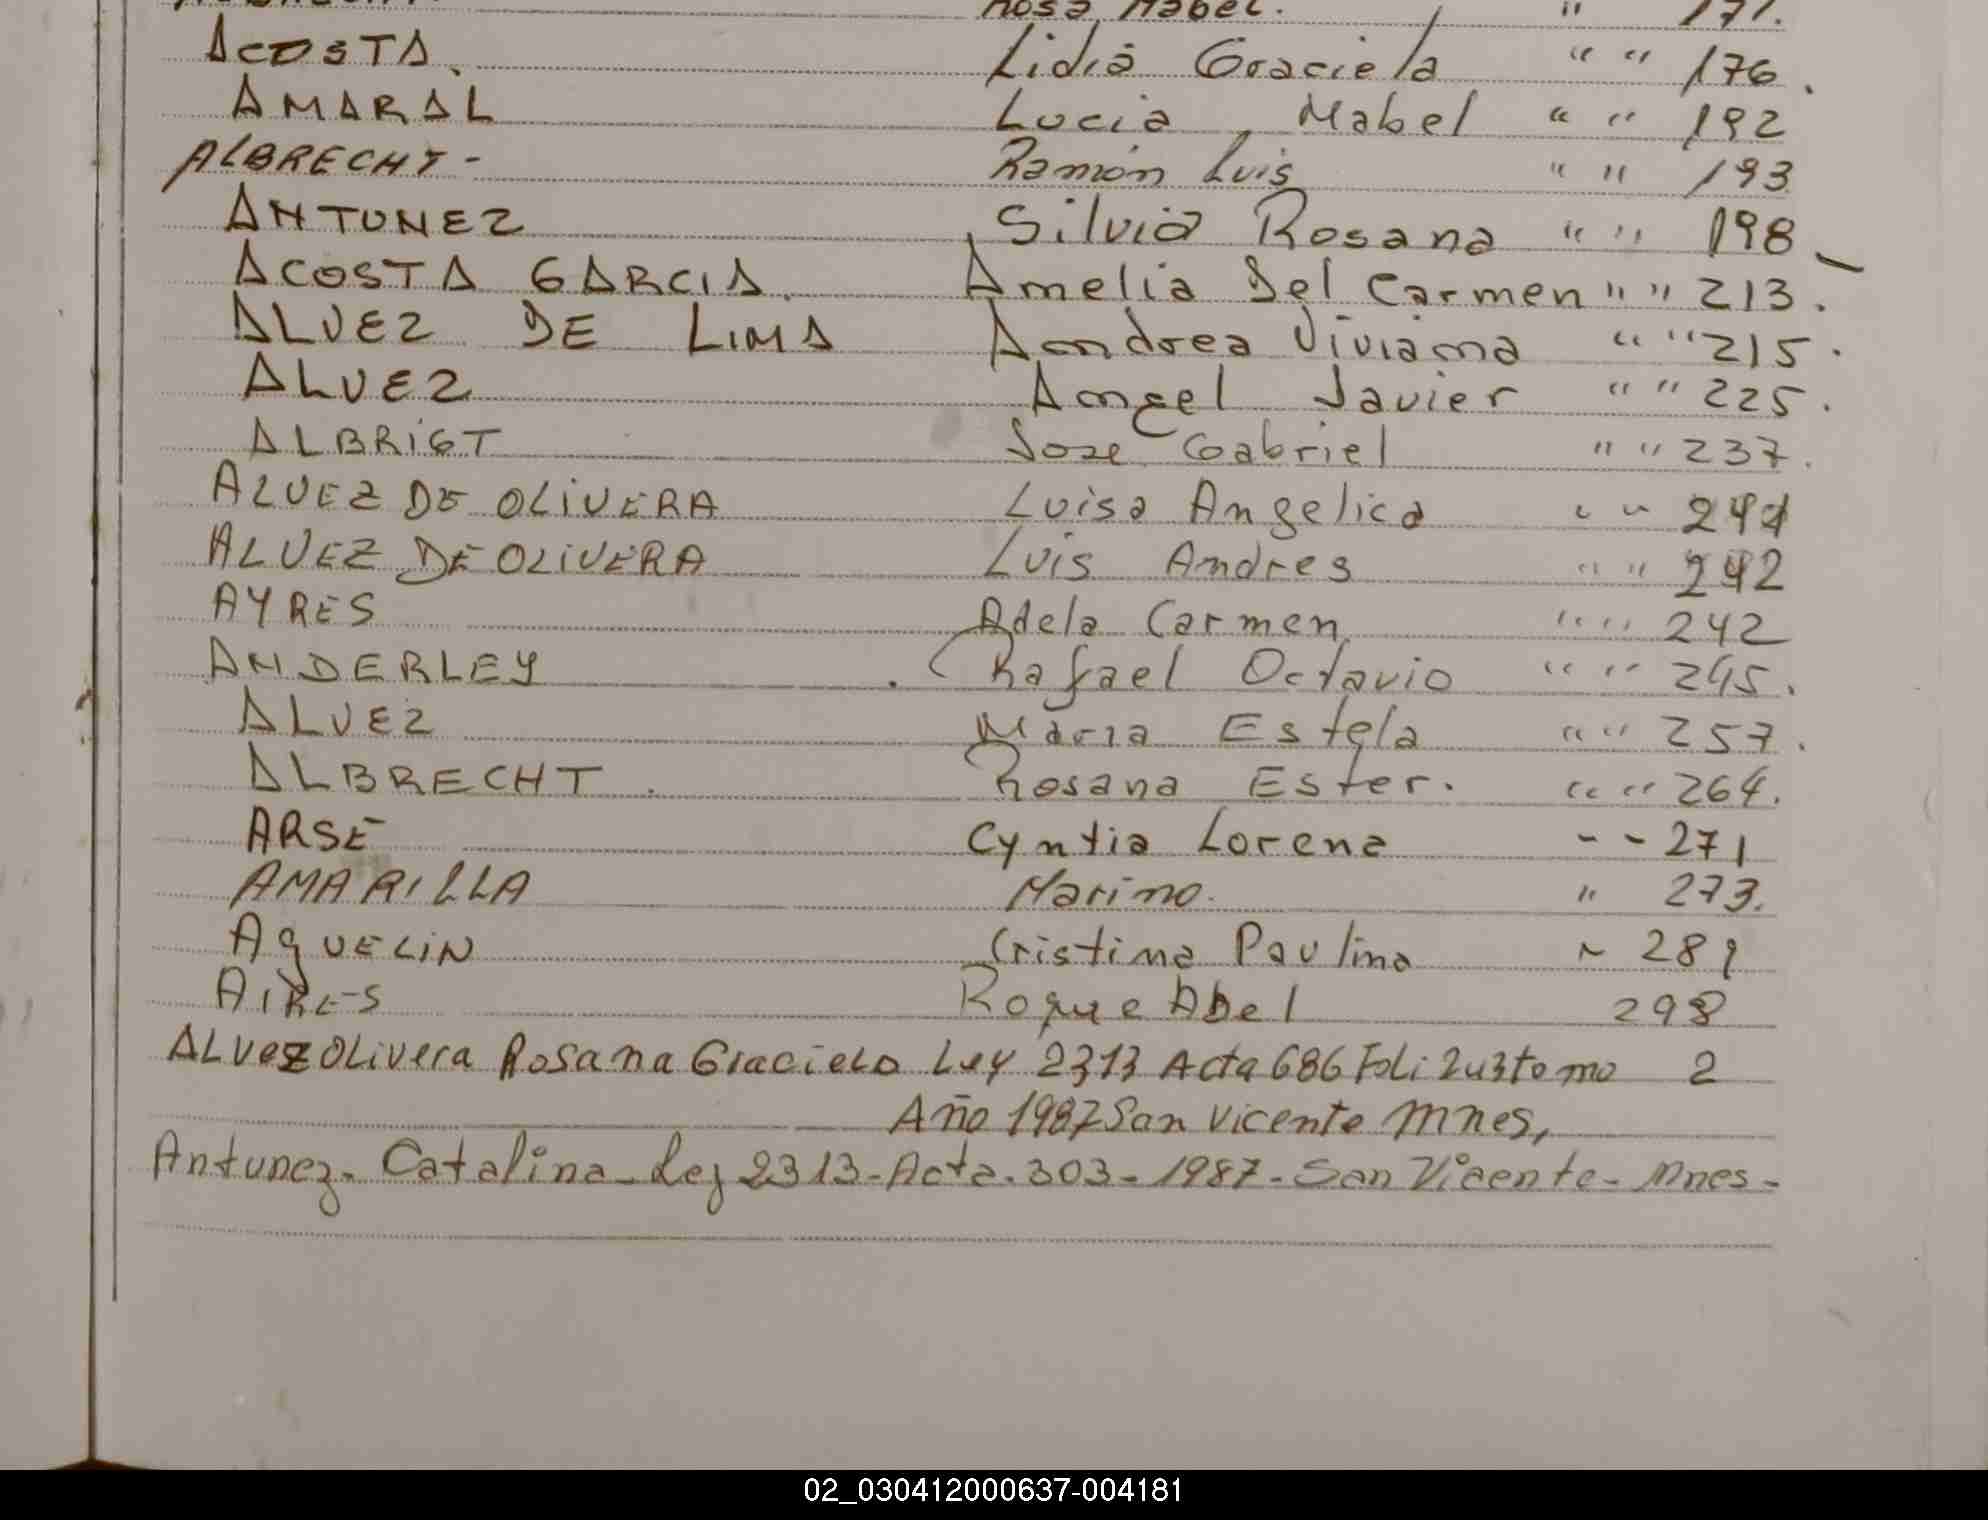 Rosa Mabel. " 171.
ACOSTA. Lidia Graciela " " 176.
AMARAL Lucia Mabel " " 192
ALBRECHT - Ramón Luis " " 193
ANTUNEZ Silvia Rosana " " 198
ACOSTA GARCIA. Amelia Del Carmen " " 213.
ALVEZ DE LIMA Andrea Viviana " " 215.
ALVEZ Angel Javier " " 225.
ALBRIGT Jose Gabriel " " 237.
ALVEZ DE OLIVERA Luisa Angelica " " 241
ALVEZ DE OLIVERA Luis Andres " " 242
AYRES Adela Carmen " " 242
ANDERLEY . Rafael Octavio " " 245.
ALVEZ Maria Estela " " 257.
ALBRECHT. Rosana Ester. " " 264.
ARSE Cyntia Lorena - - 271
AMARILLA Marino. " 273.
AQUELIN Cristina Paulina ~ 289
AIRES Roque Abel 298
ALVez OLivera Rosana Graciela Ley 2313 Acta 686 Foli 243 tomo 2
Año 1987 San Vicente Mnes,
Antunez. Catalina - Ley 2313 - Acta. 303 - 1987 - San Vicente - Mnes -
02_030412000637-004181